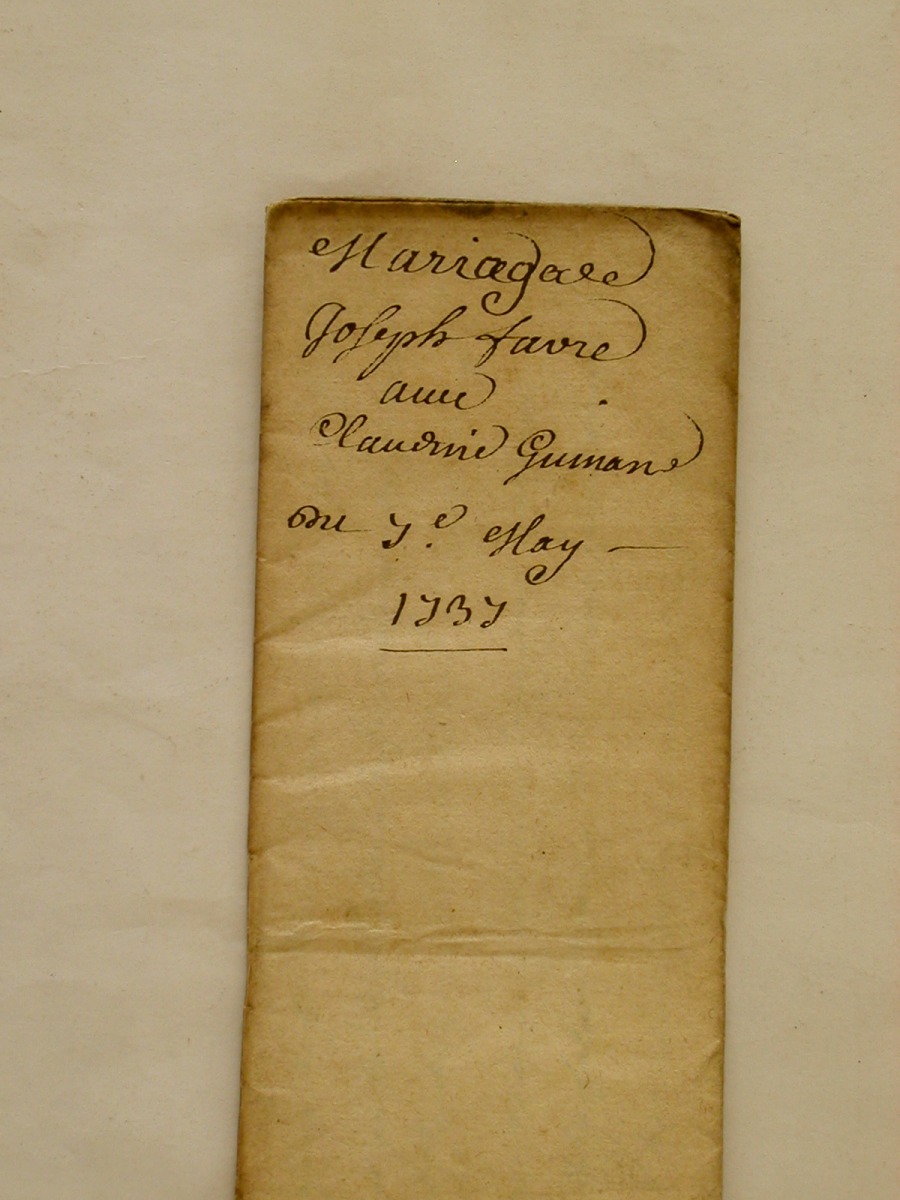 Mariagale
Joseph favre
avec
Claudine Guinand
Du 7e May —
1737